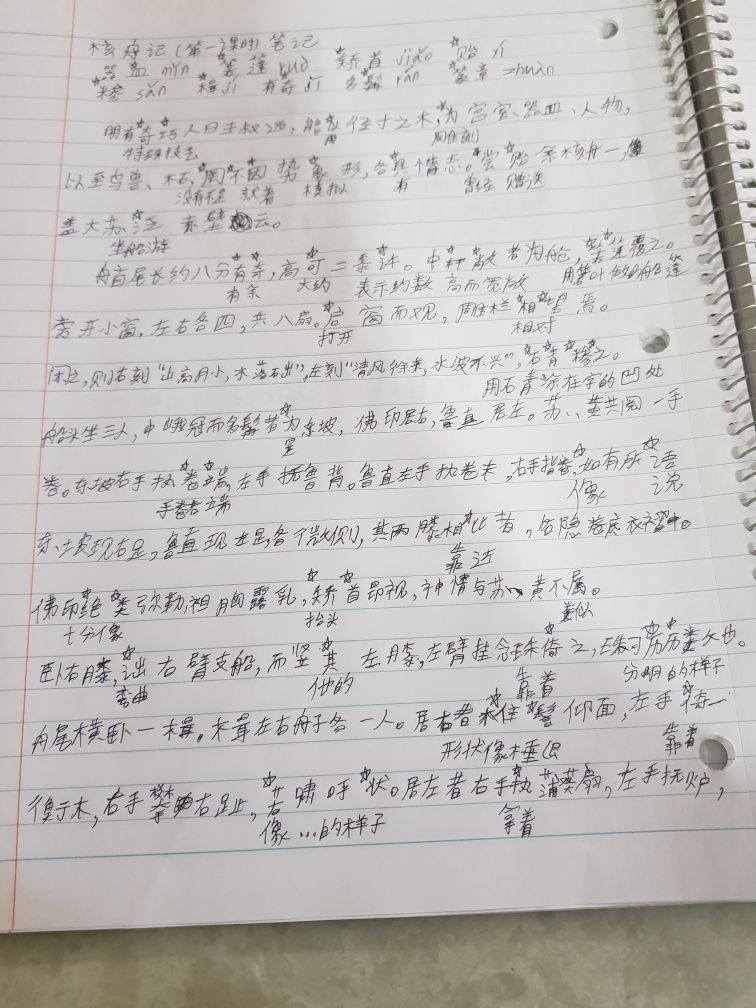 核舟记（第一课时）笔记
器皿 mǐn 箬篷 ruò 矫首 jiǎo 贻 yí
糁 sǎn 楫 jí 有奇 jī 多髯 rán 篆章 zhuàn
明有奇巧人曰王叔远，能以径寸之木，为宫室、器皿、人物，
特殊技艺 用 雕刻
以至鸟兽、木石，罔不因势象形，各具情态。尝贻余核舟一，
没有不是 就着 模拟 有 曾经 赠送
盖大苏泛赤壁云。
坐船游
舟首尾长约八分有奇，高可二黍许。中轩敞者为舱，箬篷覆之。
有余 大约 表示约数 高而宽敞 用箬叶做的船篷
旁开小窗，左右各四，共八扇。启窗而观，雕栏相望焉。
打开 相对
闭之，则右刻“山高月小，水落石出”，左刻“清风徐来，水波不兴”，石青糁之。
用石青涂在字的凹处
船头坐三人，中峨冠而多髯者为东坡，佛印居右，鲁直居左。苏、黄共阅一手
是
卷。东坡右手执卷端，左手抚鲁背。鲁直左手执卷末，右手指卷，如有所语
手卷右端 像 说
东坡现右足，鲁直现左足，各微侧，其两膝相比者，各隐卷底衣褶中。
靠近
佛印绝类弥勒，袒胸露乳，矫首昂视，神情与苏、黄不属。
十分像 抬头 类似
卧右膝，诎右臂支船，而竖其左膝，左臂挂念珠倚之，珠可历历数也。
弯曲 他的 靠着 分明的样子
舟尾横卧一楫。楫左右舟子各一人。居右者椎髻仰面，左手倚一
形状像棰 靠着
衡木，右手攀右趾，若啸呼状。居左者右手执蒲葵扇，左手抚炉，
像…的样子 拿着